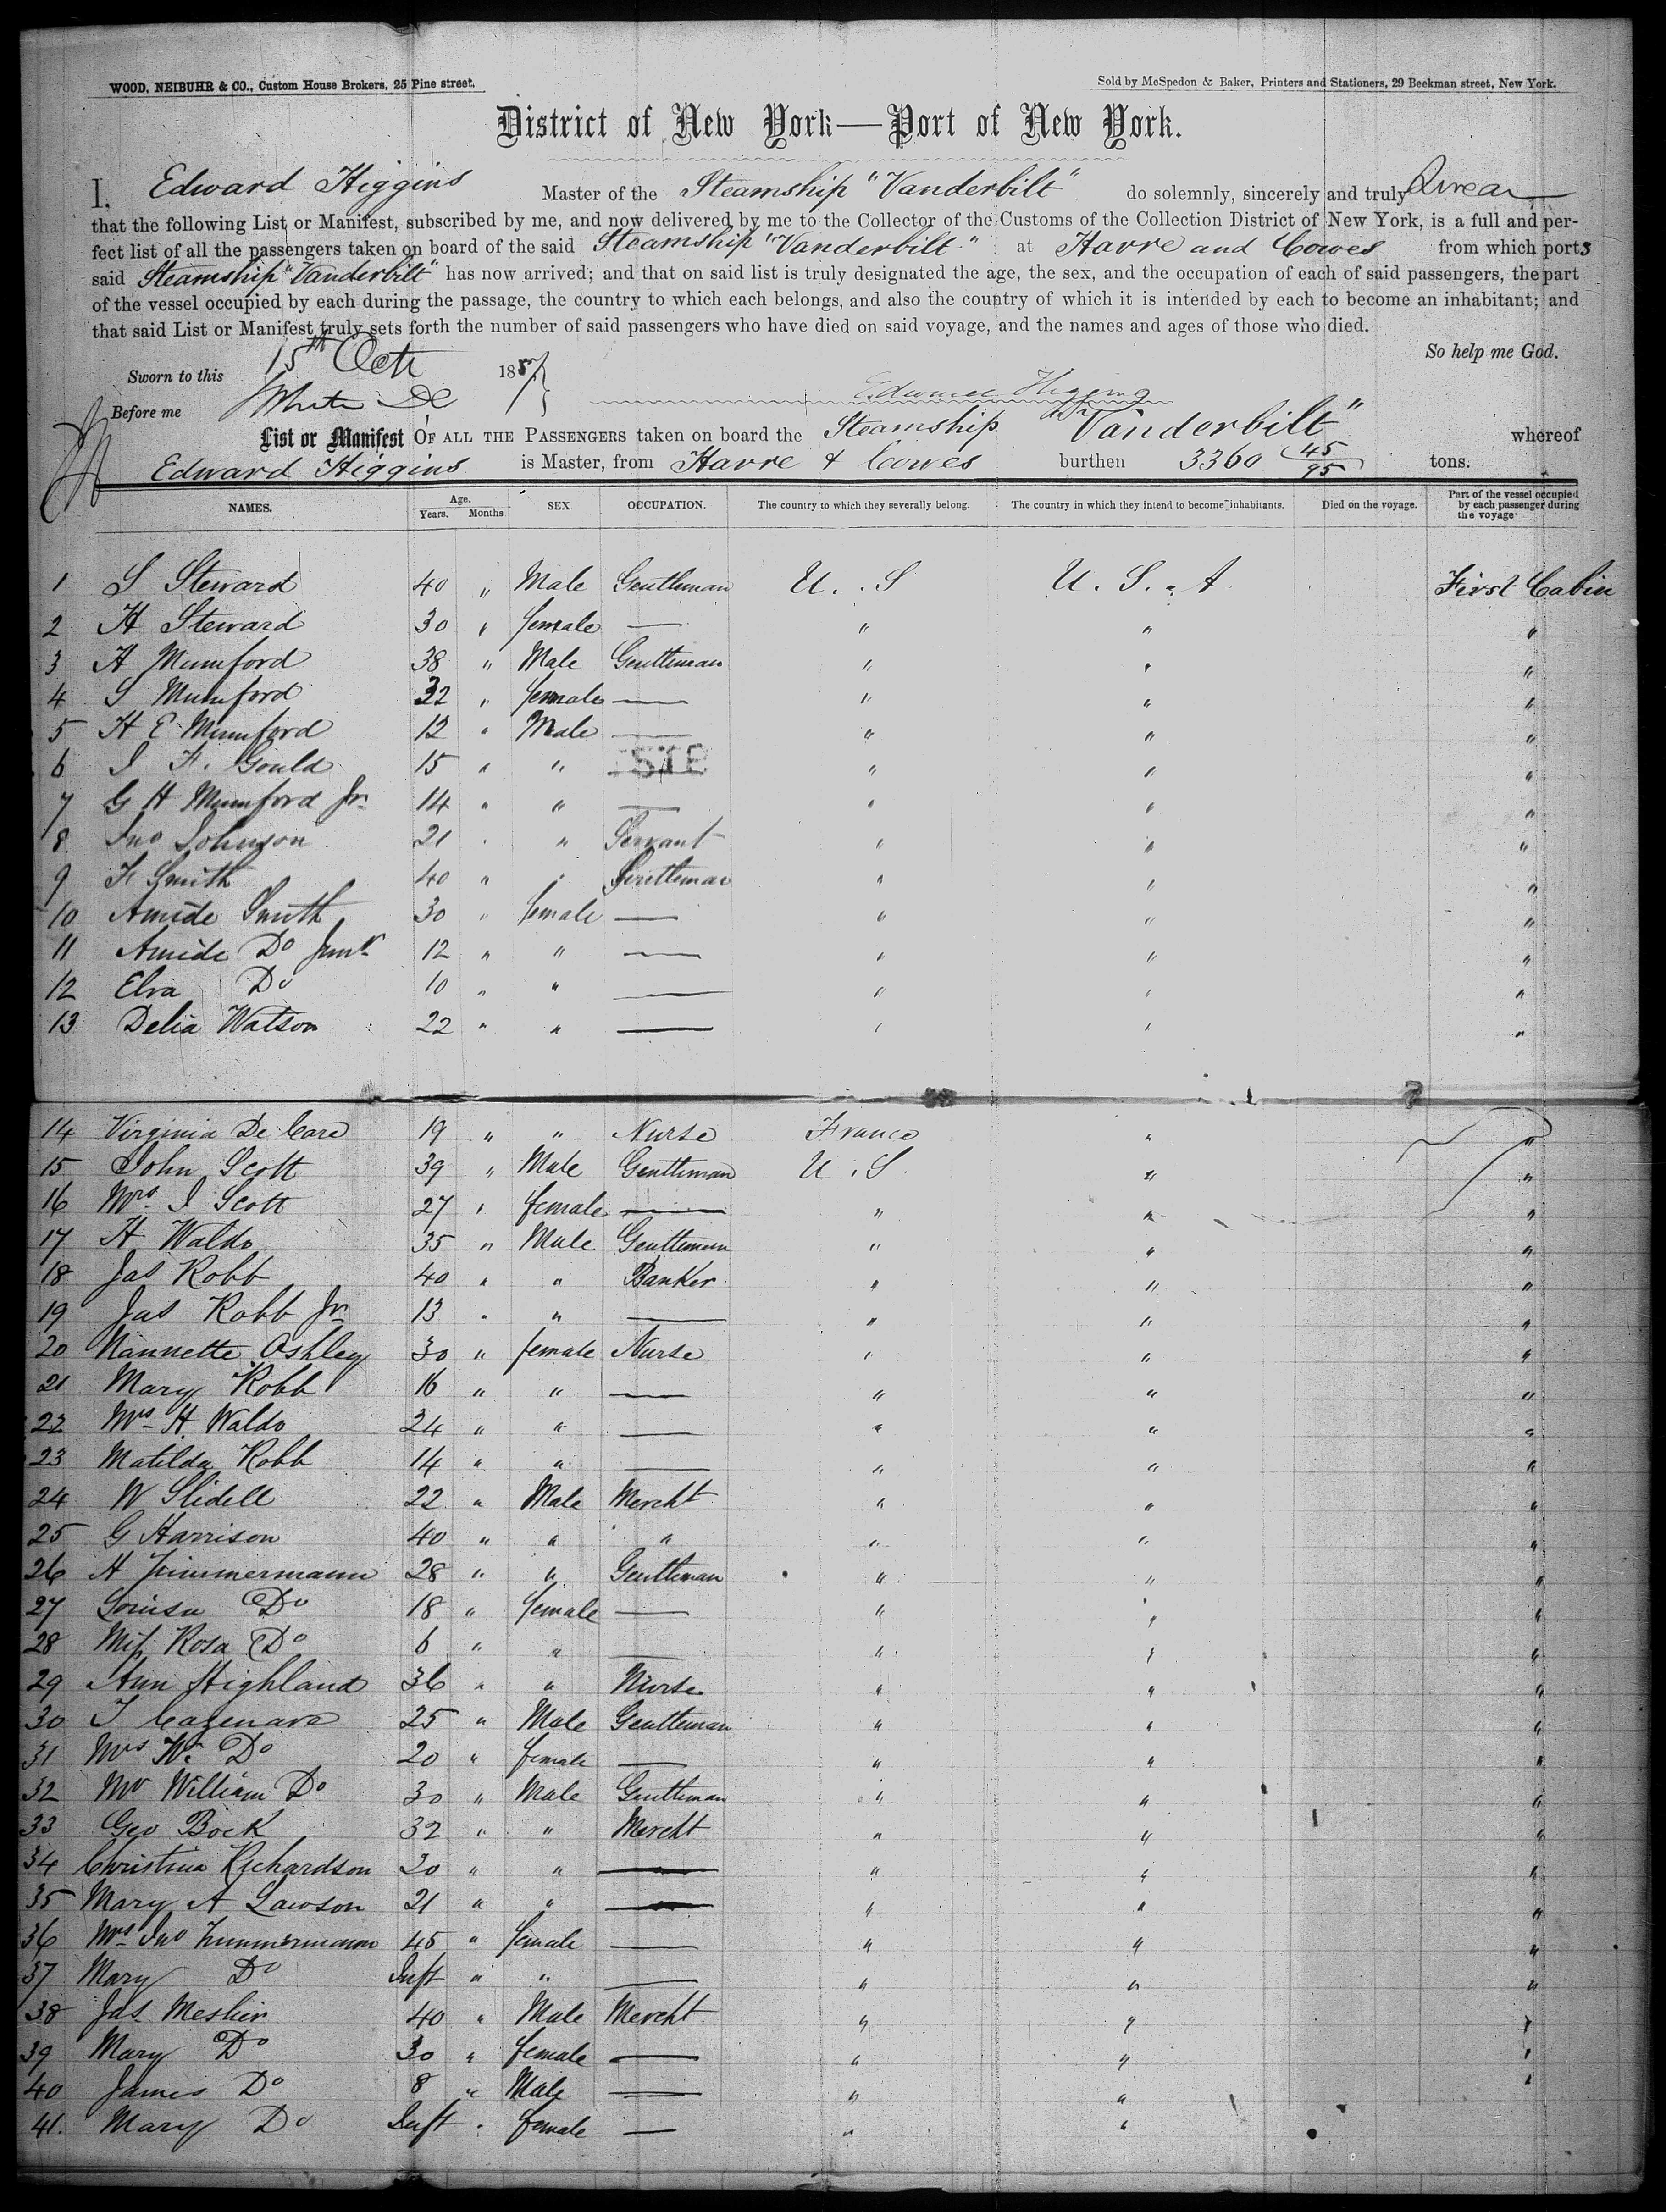 WOOD, NEIBUHR & CO., Custom House Brokers, 25 Pine street.
Sold by McSpedon & Baker, Printers and Stationers, 29 Beekman street, New York.
District of New York—Port of New York.
I, Edward Higgins Master of the Steamship "Vanderbilt" do solemnly, sincerely and truly Swear
that the following List or Manifest, subscribed by me, and now delivered by me to the Collector of the Customs of the Collection District of New York, is a full and per-
fect list of all the passengers taken on board of the said Steamship "Vanderbilt" at Havre and Cowes from which ports
said Steamship "Vanderbilt" has now arrived; and that on said list is truly designated the age, the sex, and the occupation of each of said passengers, the part
of the vessel occupied by each during the passage, the country to which each belongs, and also the country of which it is intended by each to become an inhabitant; and
that said List or Manifest truly sets forth the number of said passengers who have died on said voyage, and the names and ages of those who died.
So help me God.
Sworn to this 15th Oct 1857
Before me Edward Higgins
List or Manifest OF ALL THE PASSENGERS taken on board the Steamship "Vanderbilt" whereof
Edward Higgins is Master, from Havre & Cowes burthen 3360 45/95 tons.
NAMES. Age. Years. Months SEX. OCCUPATION. The country to which they severally belong. The country in which they intend to become inhabitants. Died on the voyage. Part of the vessel occupied by each passenger during the voyage
1 S Steward 40 " Male Gentleman U. S U. S. A First Cabin
2 H Steward 30 " female — " " "
3 A Mumford 38 " Male Gentleman " " "
4 S Mumford 32 " female — " " "
5 H E Mumford 12 " Male — " " "
6 J F. Gould 15 " " — " " "
7 G H Mumford Jr 14 " " — " " "
8 Jno Johnson 21 " " Servant " " "
9 F Smith 40 " " Gentleman " " "
10 Amide Smith 30 " female — " " "
11 Amide Do Junr 12 " " — " " "
12 Elva Do 10 " " — " " "
13 Delia Watson 22 " " — " " "
14 Virginia De Care 19 " " Nurse France " "
15 John Scott 39 " Male Gentleman U. S. " "
16 Mrs J Scott 27 " female — " " "
17 H Waldo 35 " Male Gentleman " " "
18 Jas Robb 40 " " Banker " " "
19 Jas Robb Jr 13 " " — " " "
20 Nannette Ashley 30 " female Nurse " " "
21 Mary Robb 16 " " — " " "
22 Mrs H. Waldo 24 " " — " " "
23 Matilda Robb 14 " " — " " "
24 W Slidell 22 " Male Mercht " " "
25 G Harrison 40 " " " " " "
26 H Zimmermann 28 " " Gentleman " " "
27 Louisa Do 18 " female — " " "
28 Miss Rosa Do 6 " " — " " "
29 Ann Highland 36 " " Nurse " " "
30 J Cazenave 25 " Male Gentleman " " "
31 Mrs Wm Do 20 " female — " " "
32 Mr William Do 30 " Male Gentleman " " "
33 Geo Bock 32 " " Mercht " " "
34 Christina Richardson 20 " " — " " "
35 Mary A Lawson 21 " " — " " "
36 Mrs Jno Zimmermann 45 " female — " " "
37 Mary Do Inft " " — " " "
38 Jas Meslier 40 " Male Mercht " " "
39 Mary Do 30 " female — " " "
40 James Do 8 " Male — " " "
41. Mary Do Inft " female — " "